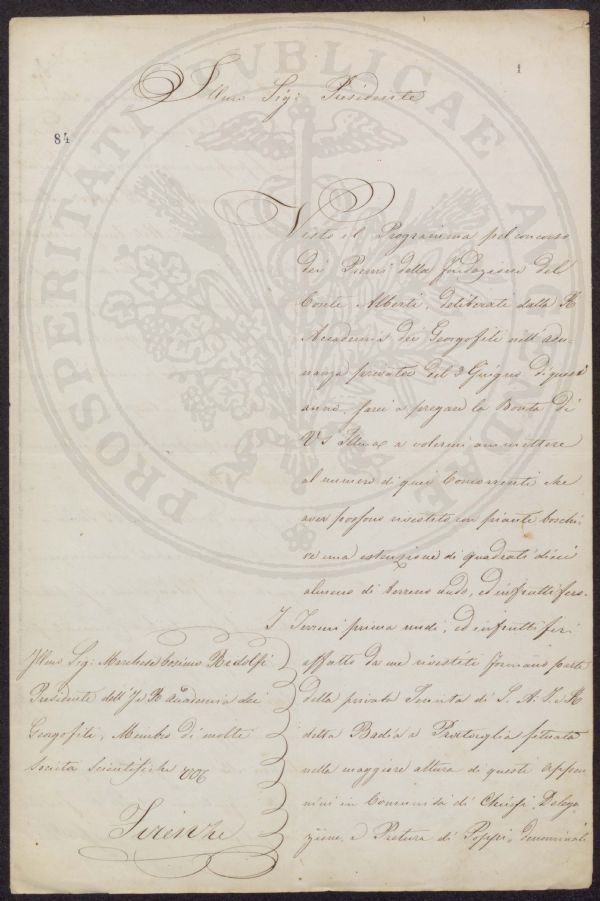 1
84
Illmo Sig: Presidente
Visto il Programma pel concorso
dei Premi della fondazione del
Conte Alberti, deliberate dalla R
Accademia dei Georgofili nell'adu-
nanza privata del 3 Giugno di quest'
anno, farei a pregare la Bontà di
V S Illma a volermi ammettere
al numero di quei Concorrenti che
aver possono rivestito con piante boschi-
ve una estenzione di quadrati dieci
almeno di terreno nudo, ed infruttifero.
I Terreni prima nudi, ed infruttiferi
affatto da me rivestiti formano parte
della privata Tenuta di S. A. I. e R
detta Badia a Prataglia situata
nella maggiore altura di questi Appen
nini in Comunità di Chiusi, Delega
zione, e Pretura di Poppi, denominati
Illmo Sig: Marchese Cosimo Ridolfi
Presidente dell'I e R Accademia dei
Georgofili, Membro di molte
Società Scientifiche
Firenze
PROSPERITATI PVBLICAE AVGENDAE